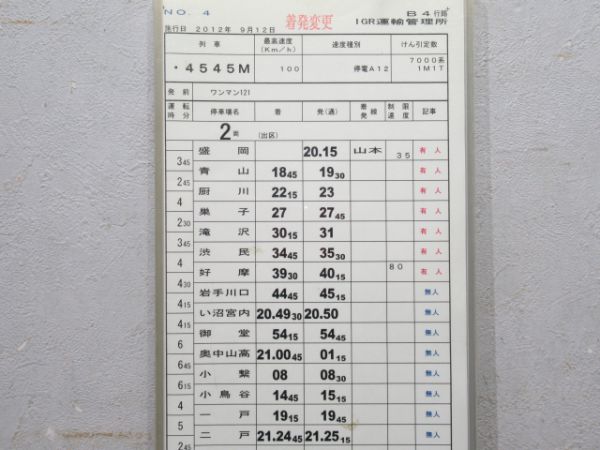 NO. 4 着発変更 B4行路
施行日 2012年 9月12日 IGR運輸管理所
列車 最高速度(Km/h) 速度種別 けん引定数
・4545M 100 停電A12 7000系 1M1T
発前 ワンマン121
運転時分 停車場名 着 発(通) 着発線 制限速度 記事
2両 (出区)
盛岡 20.15 山本 35 有人
3 45
青山 18 45 19 30 有人
2 45
厨川 22 15 23 有人
4
巣子 27 27 45 有人
2 30
滝沢 30 15 31 有人
3 45
渋民 34 45 35 30 有人
4
好摩 39 30 40 15 80 有人
4 30
岩手川口 44 45 45 15 無人
4 15
い沼宮内 20.49 30 20.50 無人
4 15
御堂 54 15 54 45 無人
6
奥中山高 21.00 45 01 15 無人
6 45
小繋 08 08 30 無人
6 15
小鳥谷 14 45 15 15 無人
4
一戸 19 15 19 45 無人
5
二戸 21.24 45 21.25 15 無人
2 45